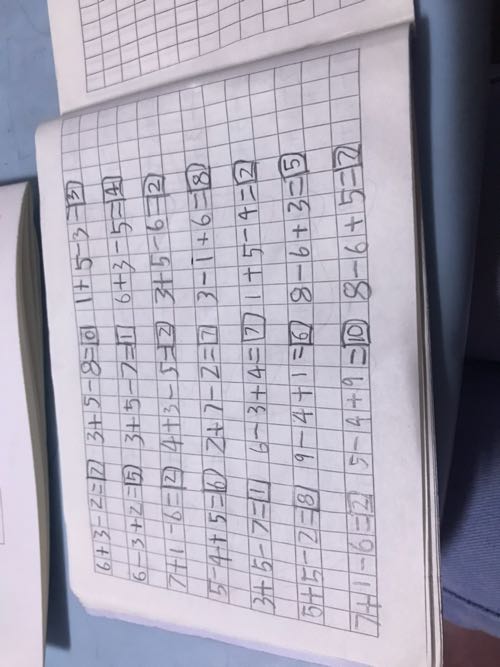 6+3-2=7 3+5-8=0 1+5-3=3
6-3+2=5 3+5-7=1 6+3-5=4
7+1-6=2 4+3-5=2 3+5-6=2
5-4+5=6 2+7-2=7 3-1+6=8
3+5-7=1 6-3+4=7 1+5-4=2
5+5-2=8 9-4+1=6 8-6+3=5
7+1-6=2 5-4+9=10 8-6+5=7